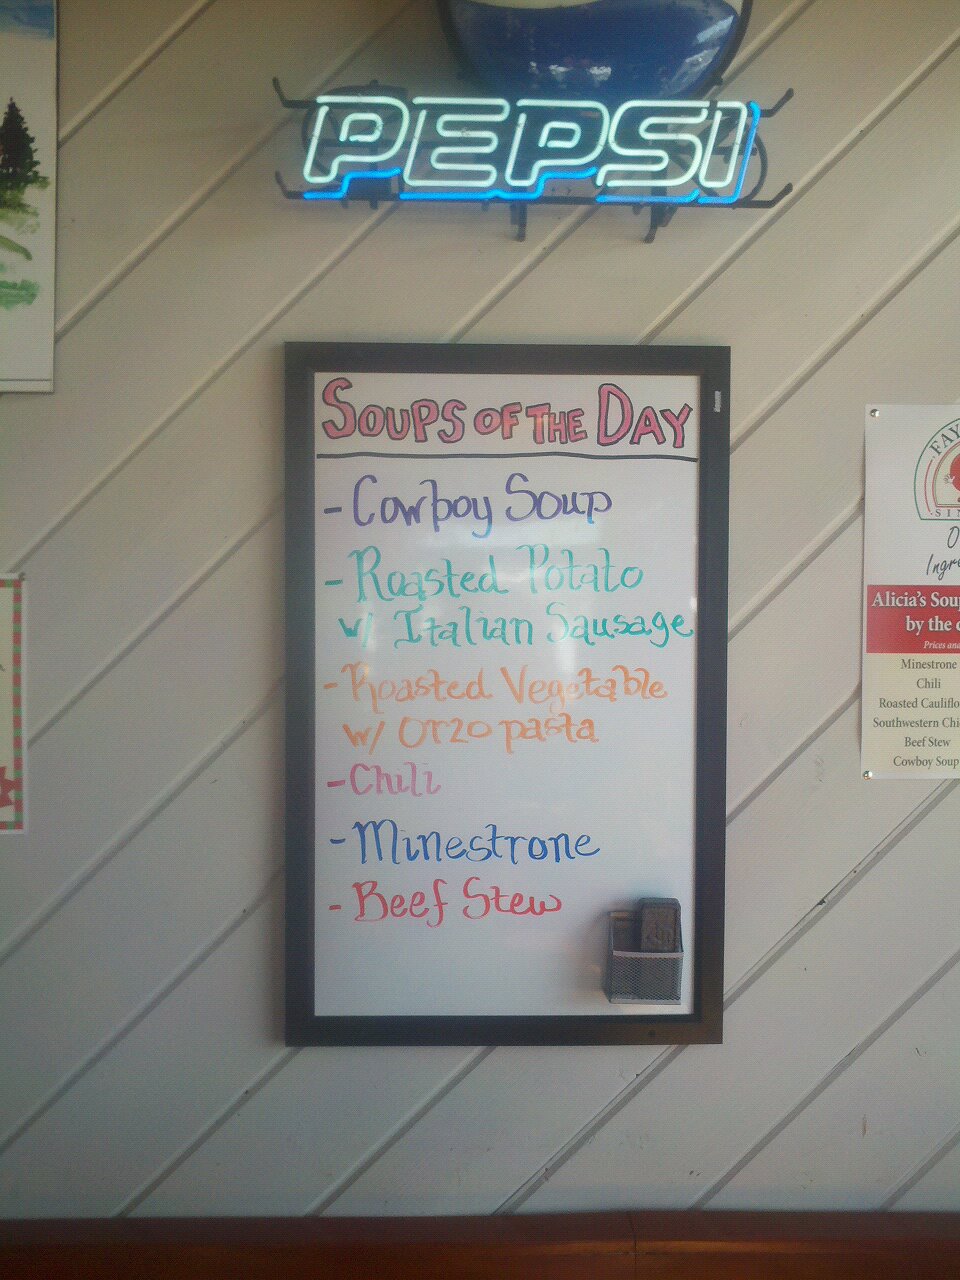 PEPSI
SOUPS OF THE DAY
- Cowboy Soup
- Roasted Potato
w/ Italian Sausage
- Roasted Vegetable
w/ Orzo pasta
- Chili
- Minestrone
- Beef Stew
FAY
SIN
Alicia's Soup
by the
Prices and
Minestrone
Chili
Roasted Cauliflo
Southwestern Chi
Beef Stew
Cowboy Soup